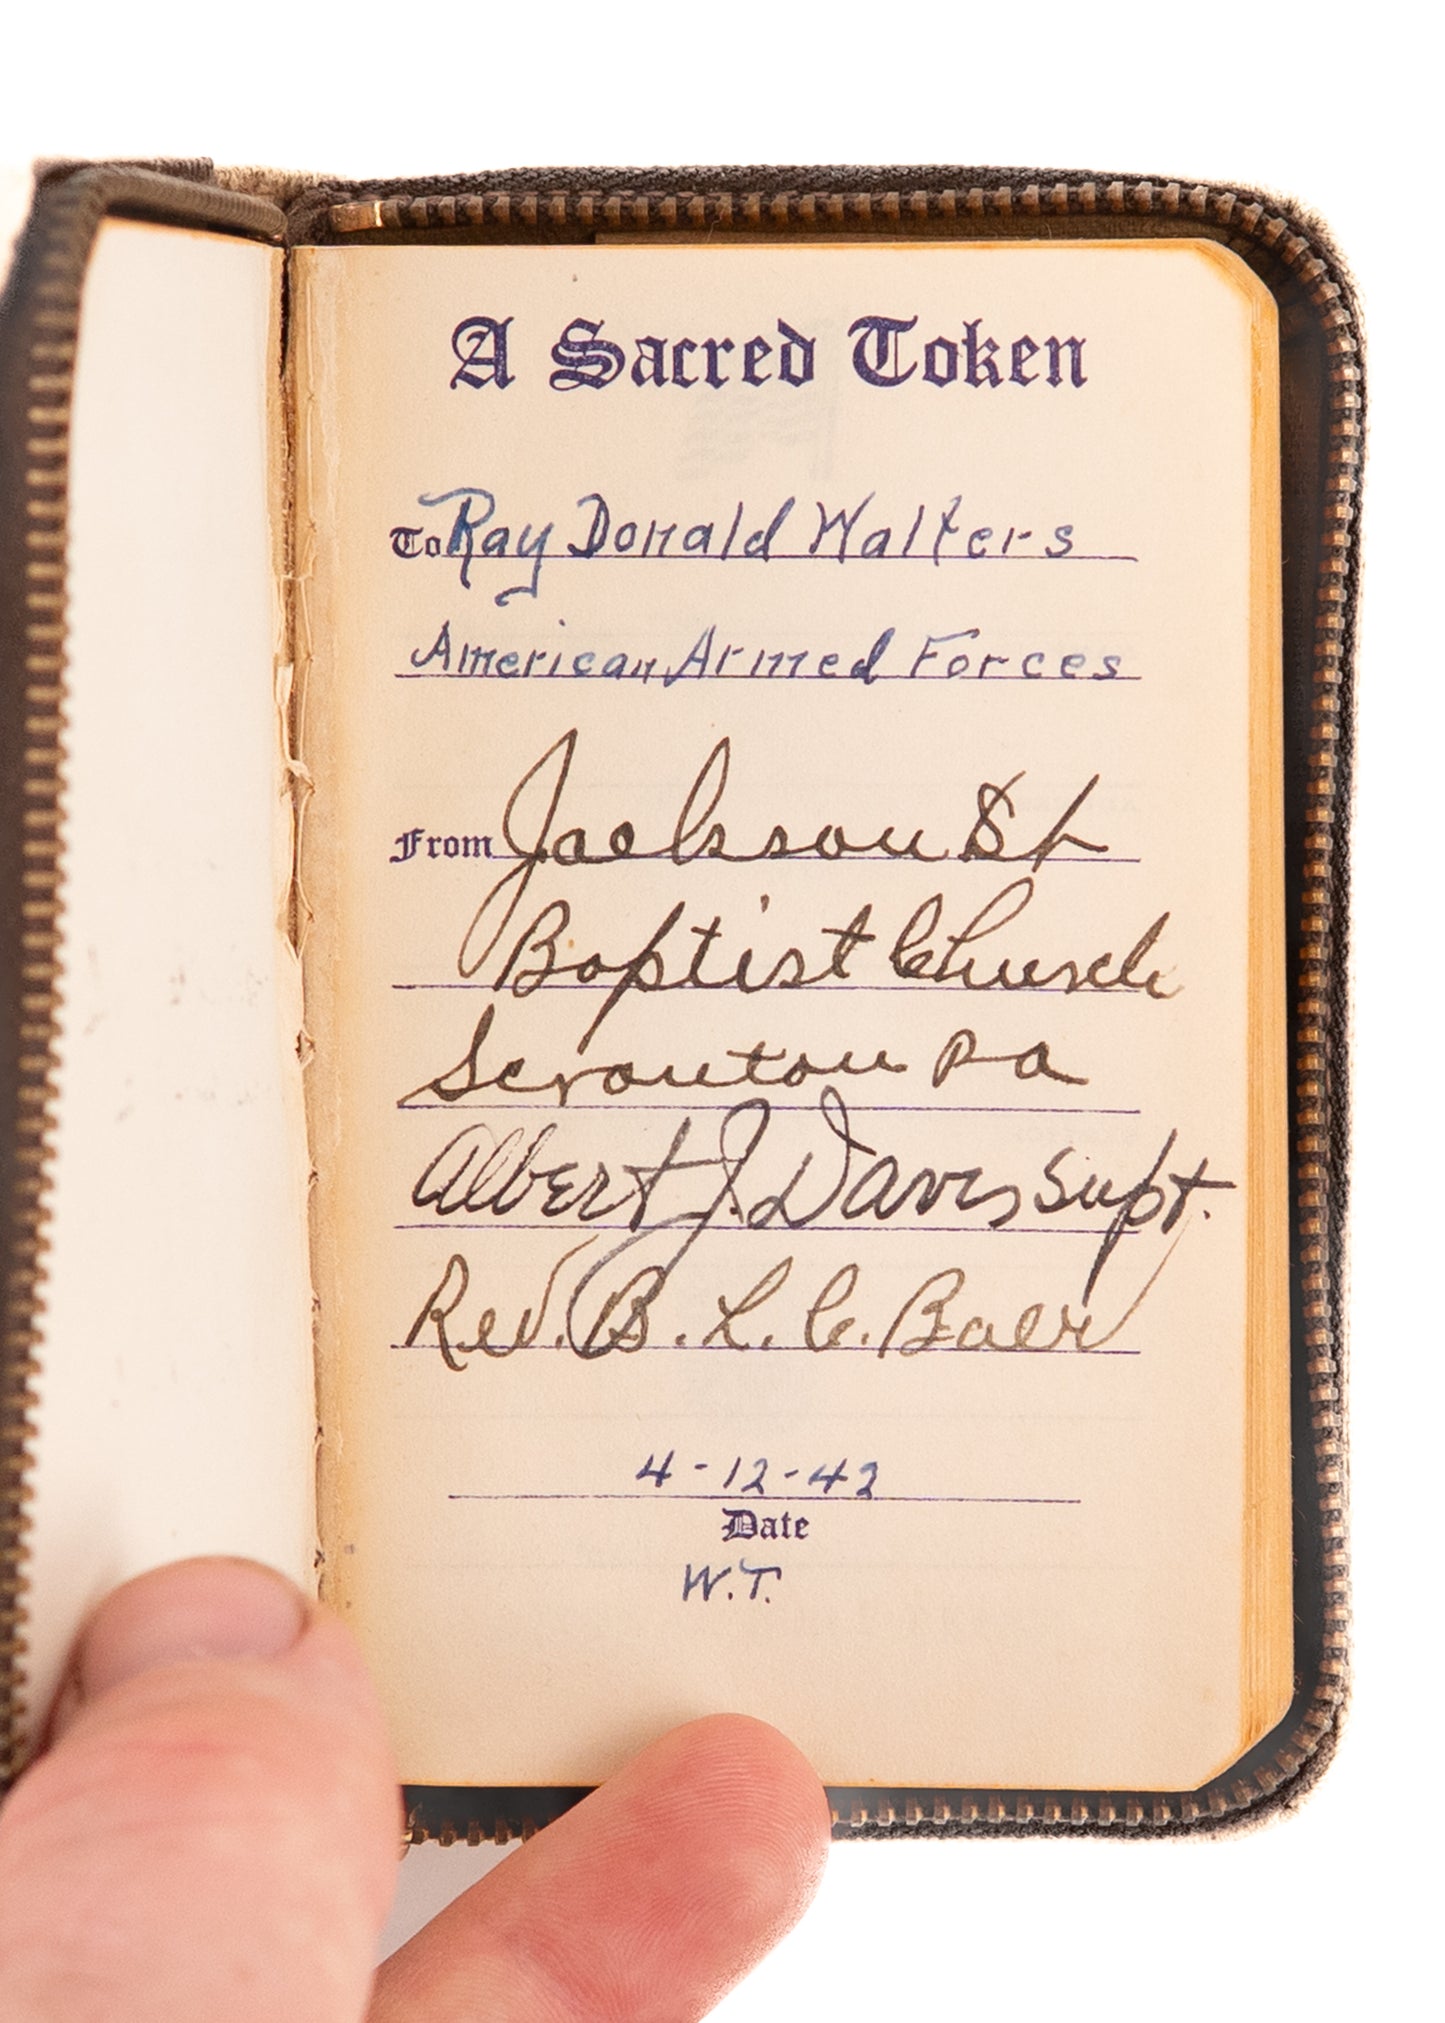 A Sacred Token
To Ray Donald Walters
American Armed Forces
From Jackson St
Baptist Church
Scranton Pa
Albert J. Davis Supt.
Rev. B. L. C. Baer
4-12-42
Date
W.T.